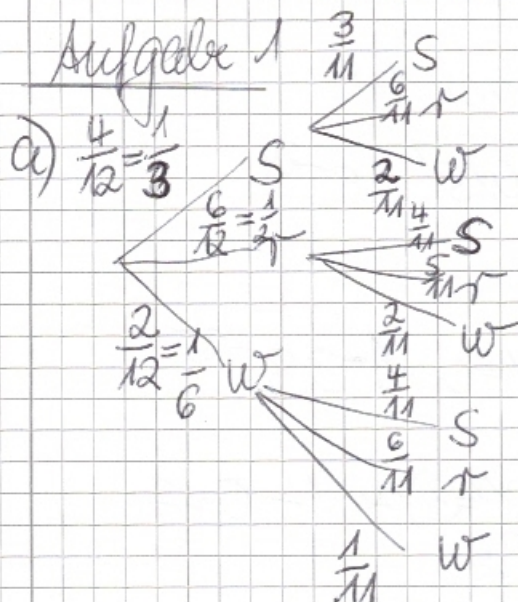 Aufgabe 1
a) 4/12 = 1/3
S
6/12 = 1/2
r
2/12 = 1/6
W
3/11 S
6/11 r
2/11 W
4/11 S
5/11 r
2/11 W
4/11 S
6/11 r
1/11 W